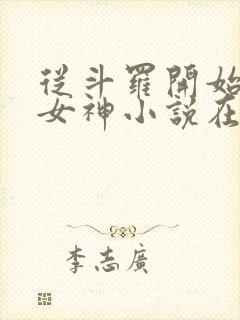 從斗羅開始
女神小說在
李志廣